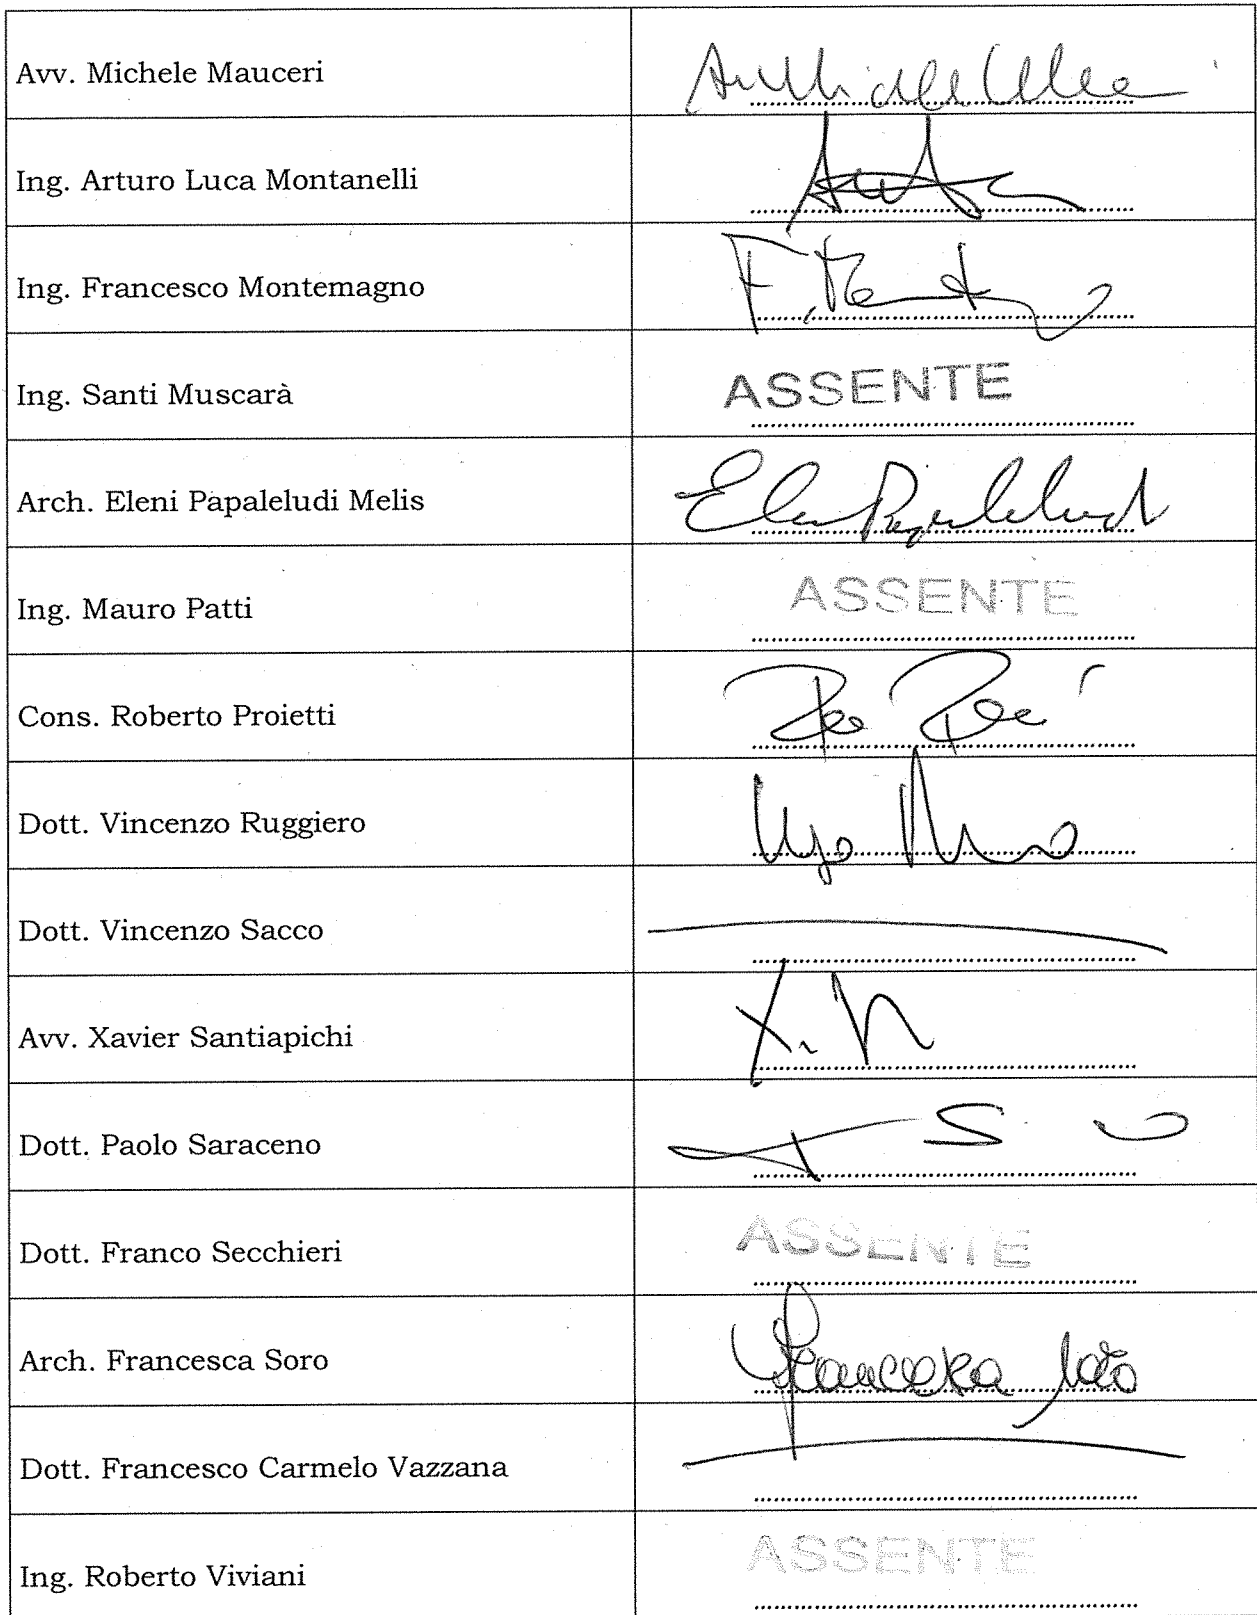 Avv. Michele Mauceri
Ing. Arturo Luca Montanelli
Ing. Francesco Montemagno
Ing. Santi Muscarà ASSENTE
Arch. Eleni Papaleludi Melis
Ing. Mauro Patti ASSENTE
Cons. Roberto Proietti
Dott. Vincenzo Ruggiero
Dott. Vincenzo Sacco
Avv. Xavier Santiapichi
Dott. Paolo Saraceno
Dott. Franco Secchieri ASSENTE
Arch. Francesca Soro Francesca Soro
Dott. Francesco Carmelo Vazzana
Ing. Roberto Viviani ASSENTE